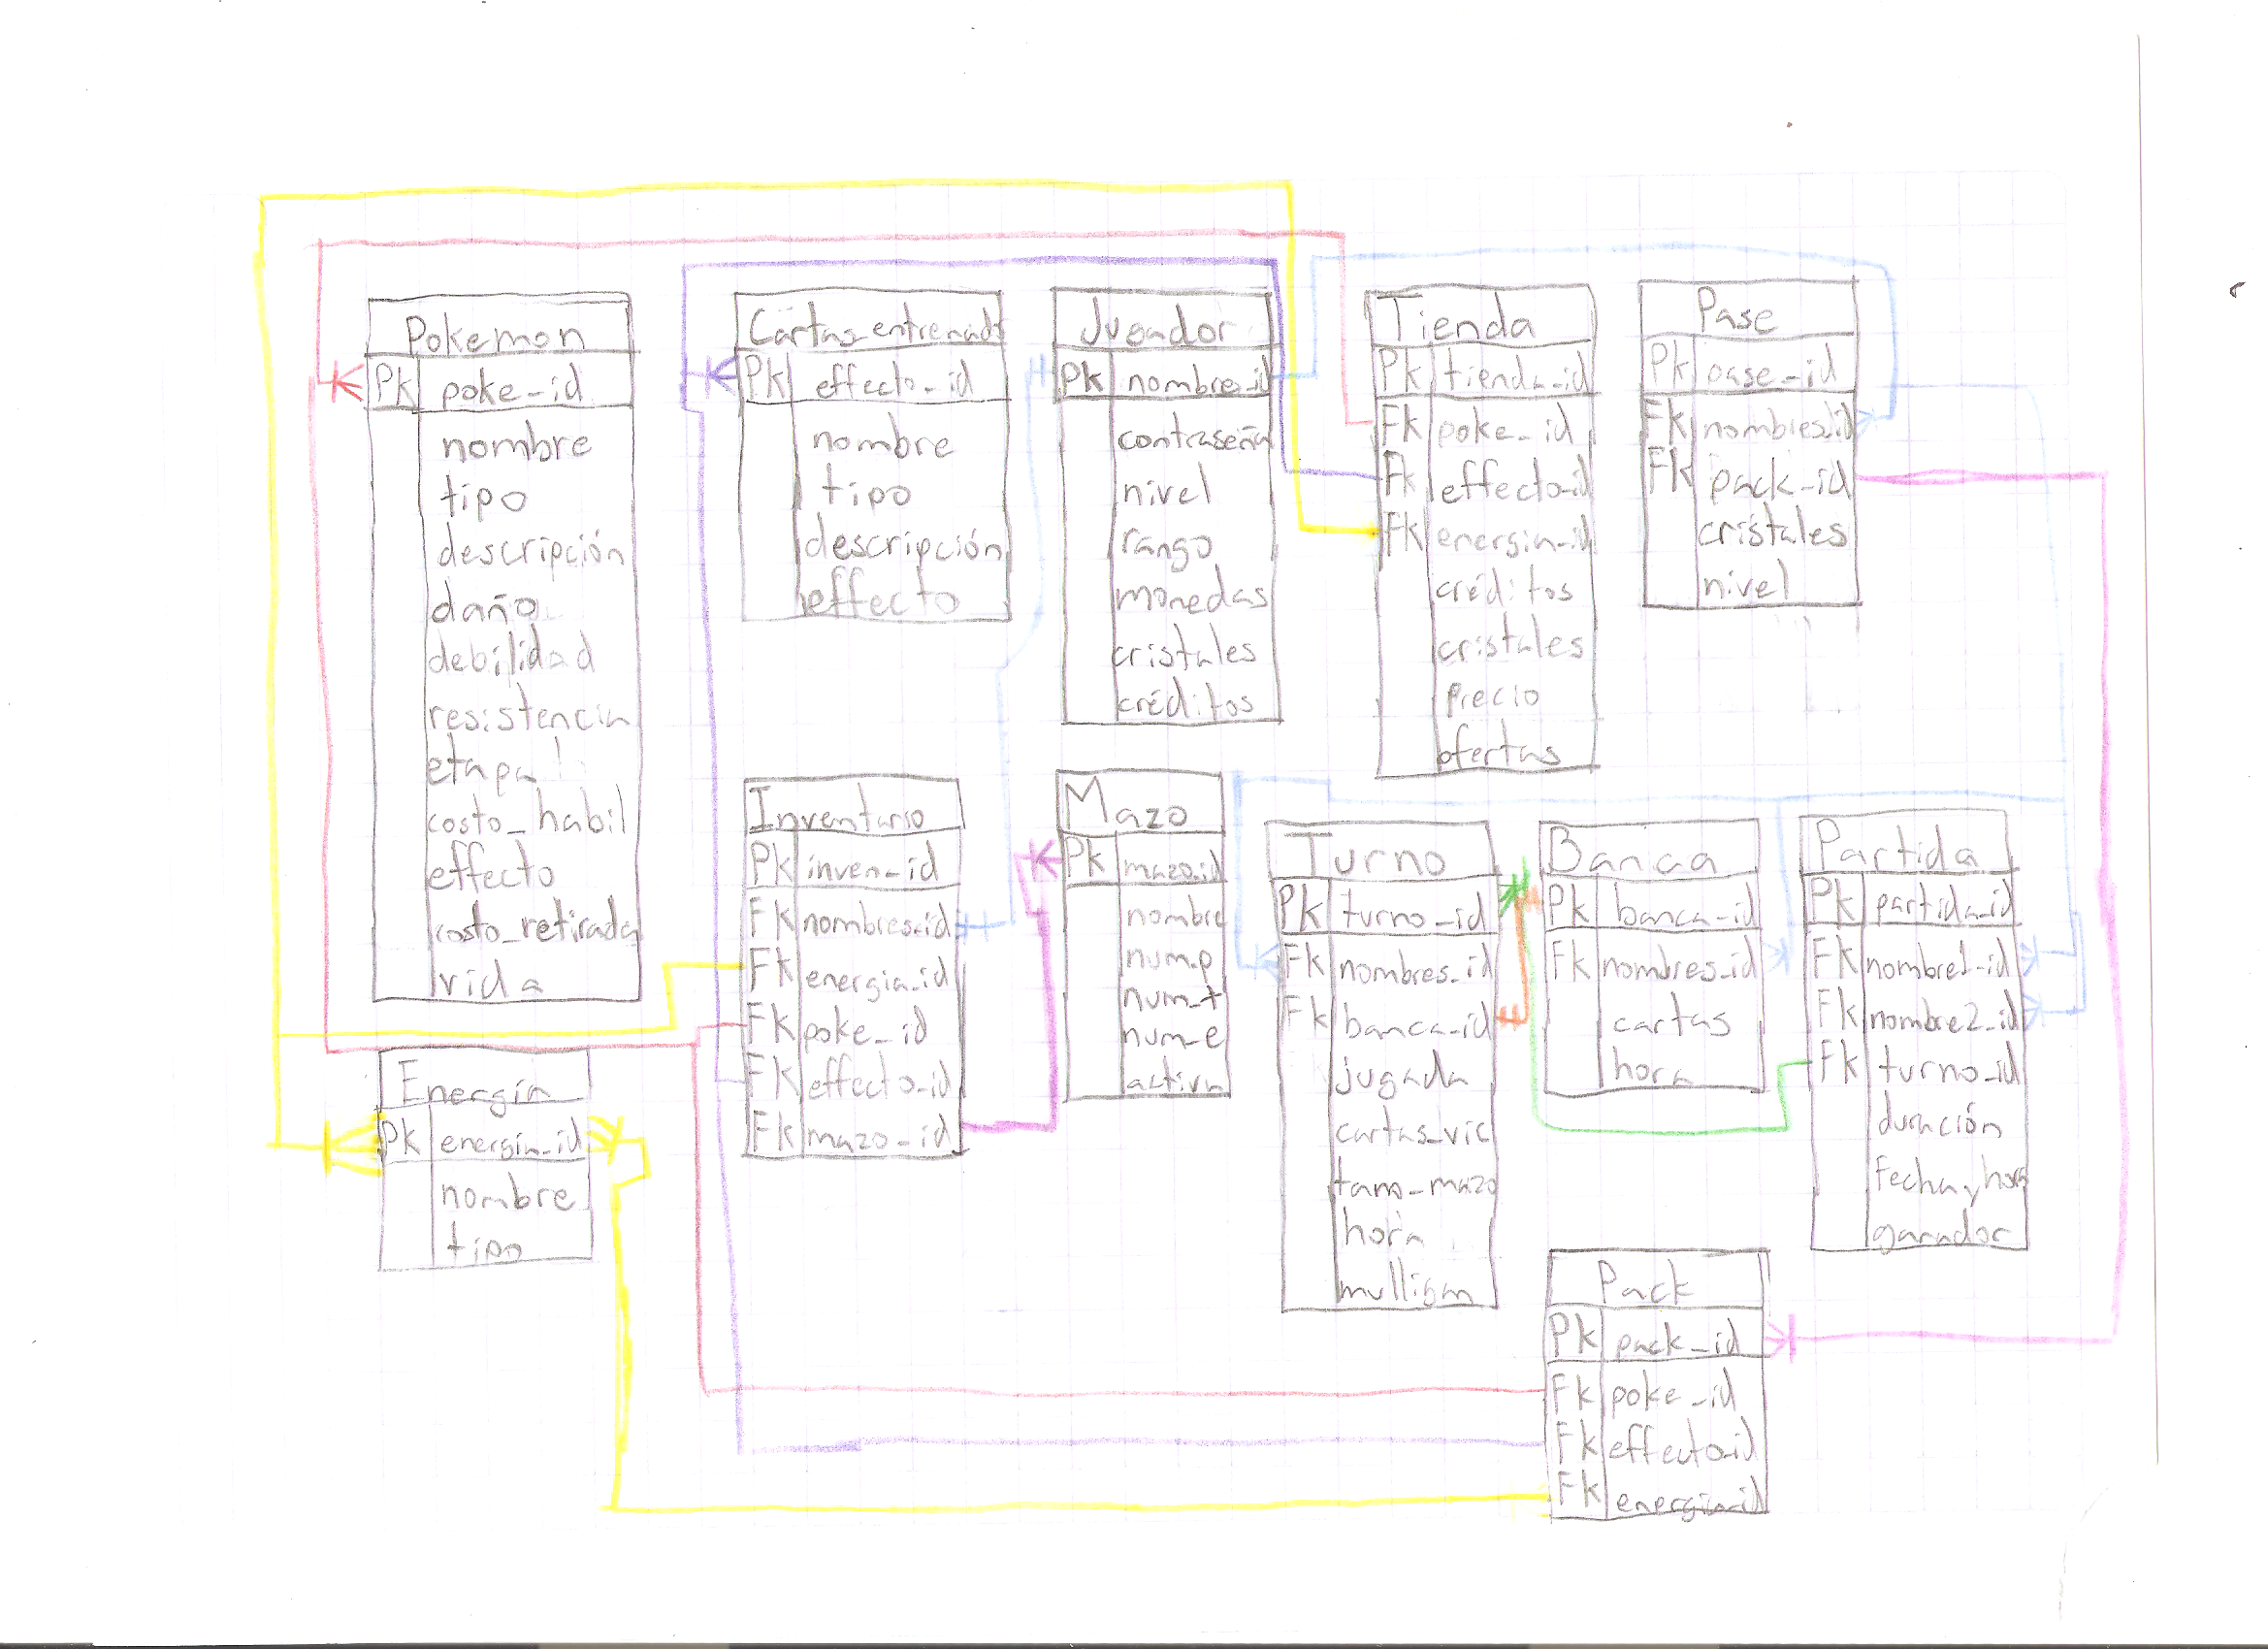 Pokemon
Pk poke_id
nombre
tipo
descripción
daño
debilidad
resistencia
etapa
costo_habil
effecto
costo_retirada
vida
Cartas_entrenad
Pk effecto_id
nombre
tipo
descripción
effecto
Jugador
Pk nombres_id
contraseña
nivel
rango
monedas
cristales
créditos
Tienda
Pk tienda_id
Fk poke_id
Fk effecto_id
Fk energia_id
créditos
cristales
precio
ofertas
Pase
Pk pase_id
Fk nombres_id
Fk pack_id
cristales
nivel
Energía
Pk energía_id
nombre
tipo
Inventario
Pk inven_id
Fk nombres_id
Fk energia_id
Fk poke_id
Fk effecto_id
Fk mazo_id
Mazo
Pk mazo_id
nombre
num_p
num_t
num_e
activa
Turno
Pk turno_id
Fk nombres_id
Fk banca_id
jugada
cartas_vic
tam_mazo
hora
mulligan
Banca
Pk banca_id
Fk nombres_id
cartas
hora
Partida
Pk partida_id
Fk nombre1_id
Fk nombre2_id
Fk turno_id
duración
fecha y hora
ganador
Pack
Pk pack_id
Fk poke_id
Fk effecto_id
Fk energia_id